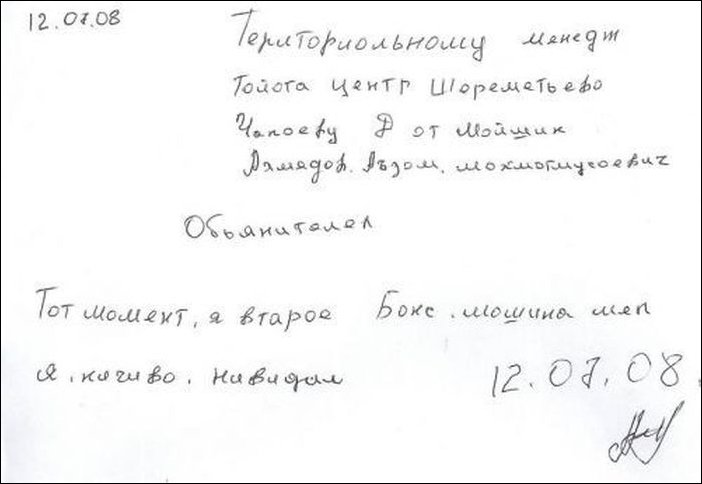 12.07.08
Териториольному менедж
Тойота центр Шореметьево
Чапоеву Д от Мойшик
Ахмедов. Аъзом. мохмотмусоевич
Обьянителел
Тот момент, я второе Бокс. мошина меп
я. ничиво. нивидал 12.07.08